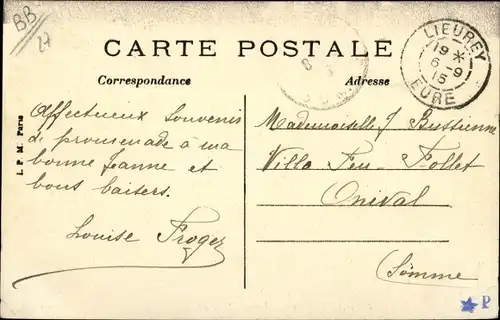 BB
27
CARTE POSTALE
Correspondance
Adresse
LIEUREY
19 *
6 - 9
15
EURE
I. P. M. Paris
Affectueux souvenir
de promenade à ma
bonne Jeanne et
bons baisers.
Louise Froger
Mademoiselle J.
Villa Feu-Follet
Onival
Somme